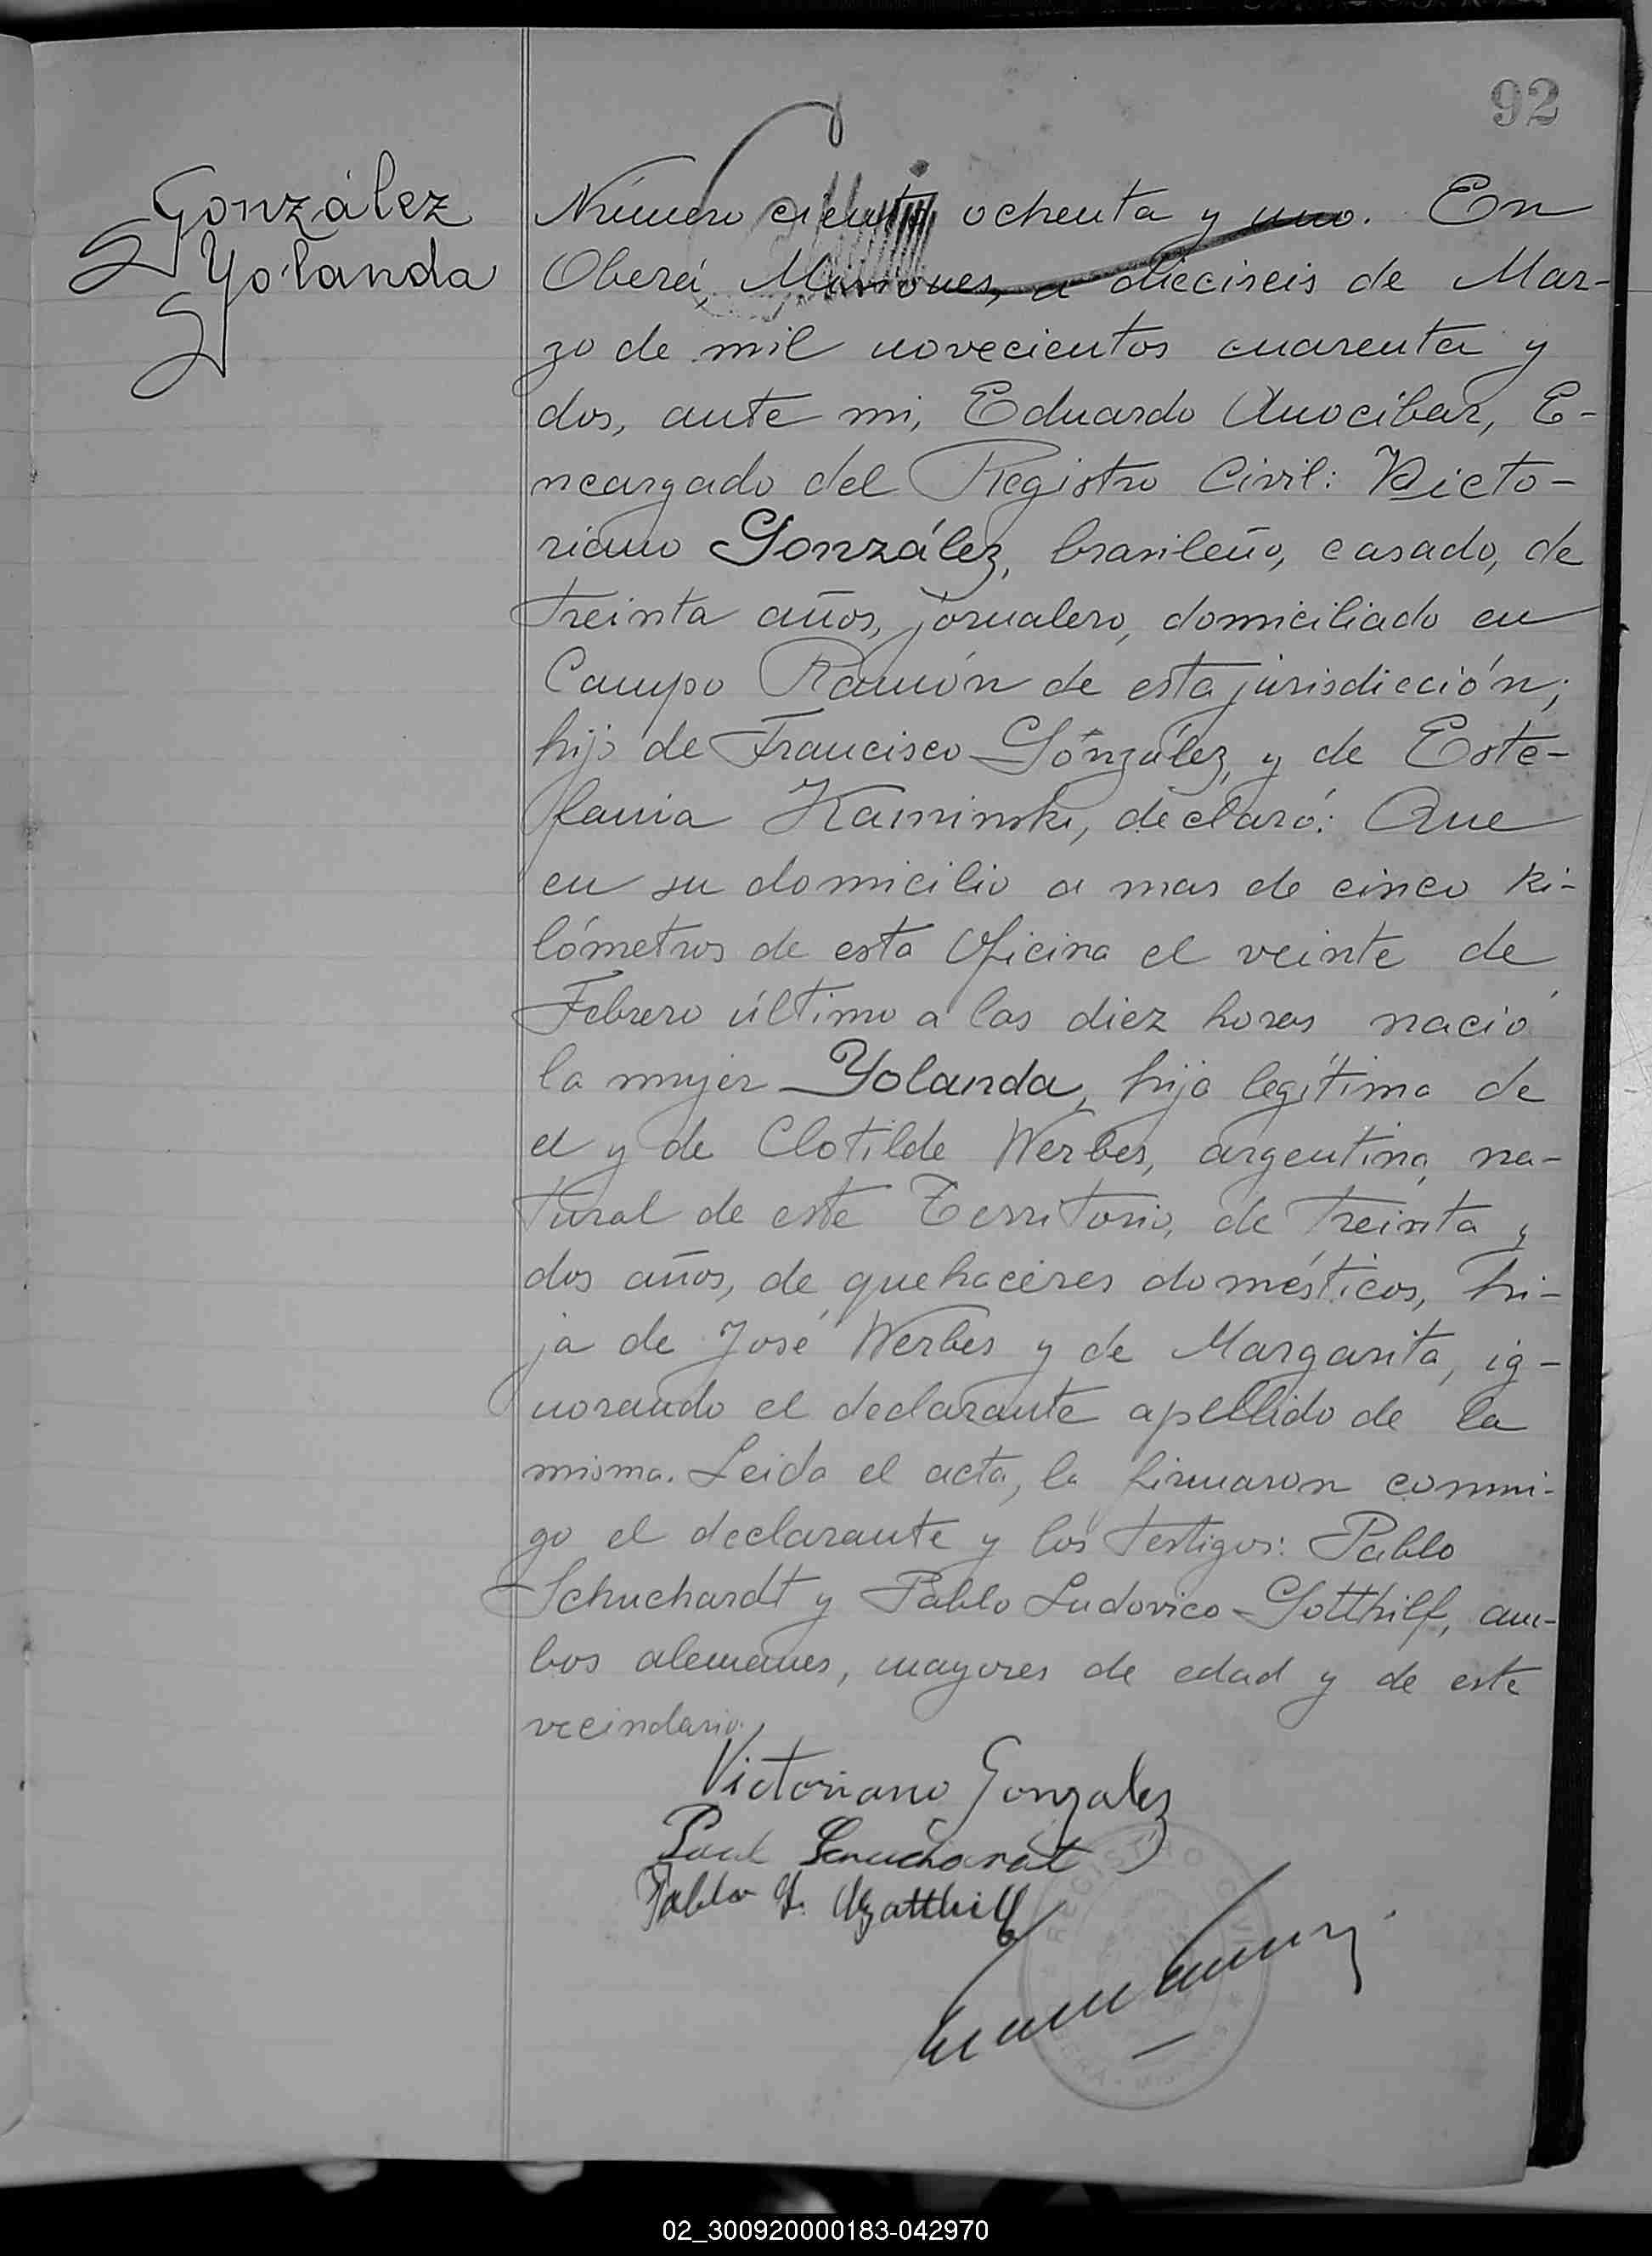 92
González
Yolanda
Número ciento ochenta y uno. En
Oberá, Misiones, a dieciseis de Mar-
zo de mil novecientos cuarenta y
dos, ante mi, Eduardo Anocibar, E-
ncargado del Registro Civil: Victo-
riano González, brasileño, casado, de
treinta años, jornalero, domiciliado en
Campo Ramón de esta jurisdicción;
hijo de Francisco González, y de Este-
fania Kaminski, declaró: Que
en su domicilio a mas de cinco ki-
lómetros de esta Oficina el veinte de
Febrero último a las diez horas nació
la mujer Yolanda, hija legítima de
el y de Clotilde Werbes, argentina, na-
tural de este Territorio, de treinta y
dos años, de quehaceres domésticos, hi-
ja de José Werbes y de Margarita, ig-
norando el declarante apellido de la
misma. Leida el acta, la firmaron conmi-
go el declarante y los testigos: Pablo
Schuchardt y Pablo Ludovico Gotthilf, am-
bos alemanes, mayores de edad y de este
vecindario.
Victoriano Gonzalez
Paul Schuchardt
Pablo L. Gotthilf
REGISTRO CIVIL
02_300920000183-042970